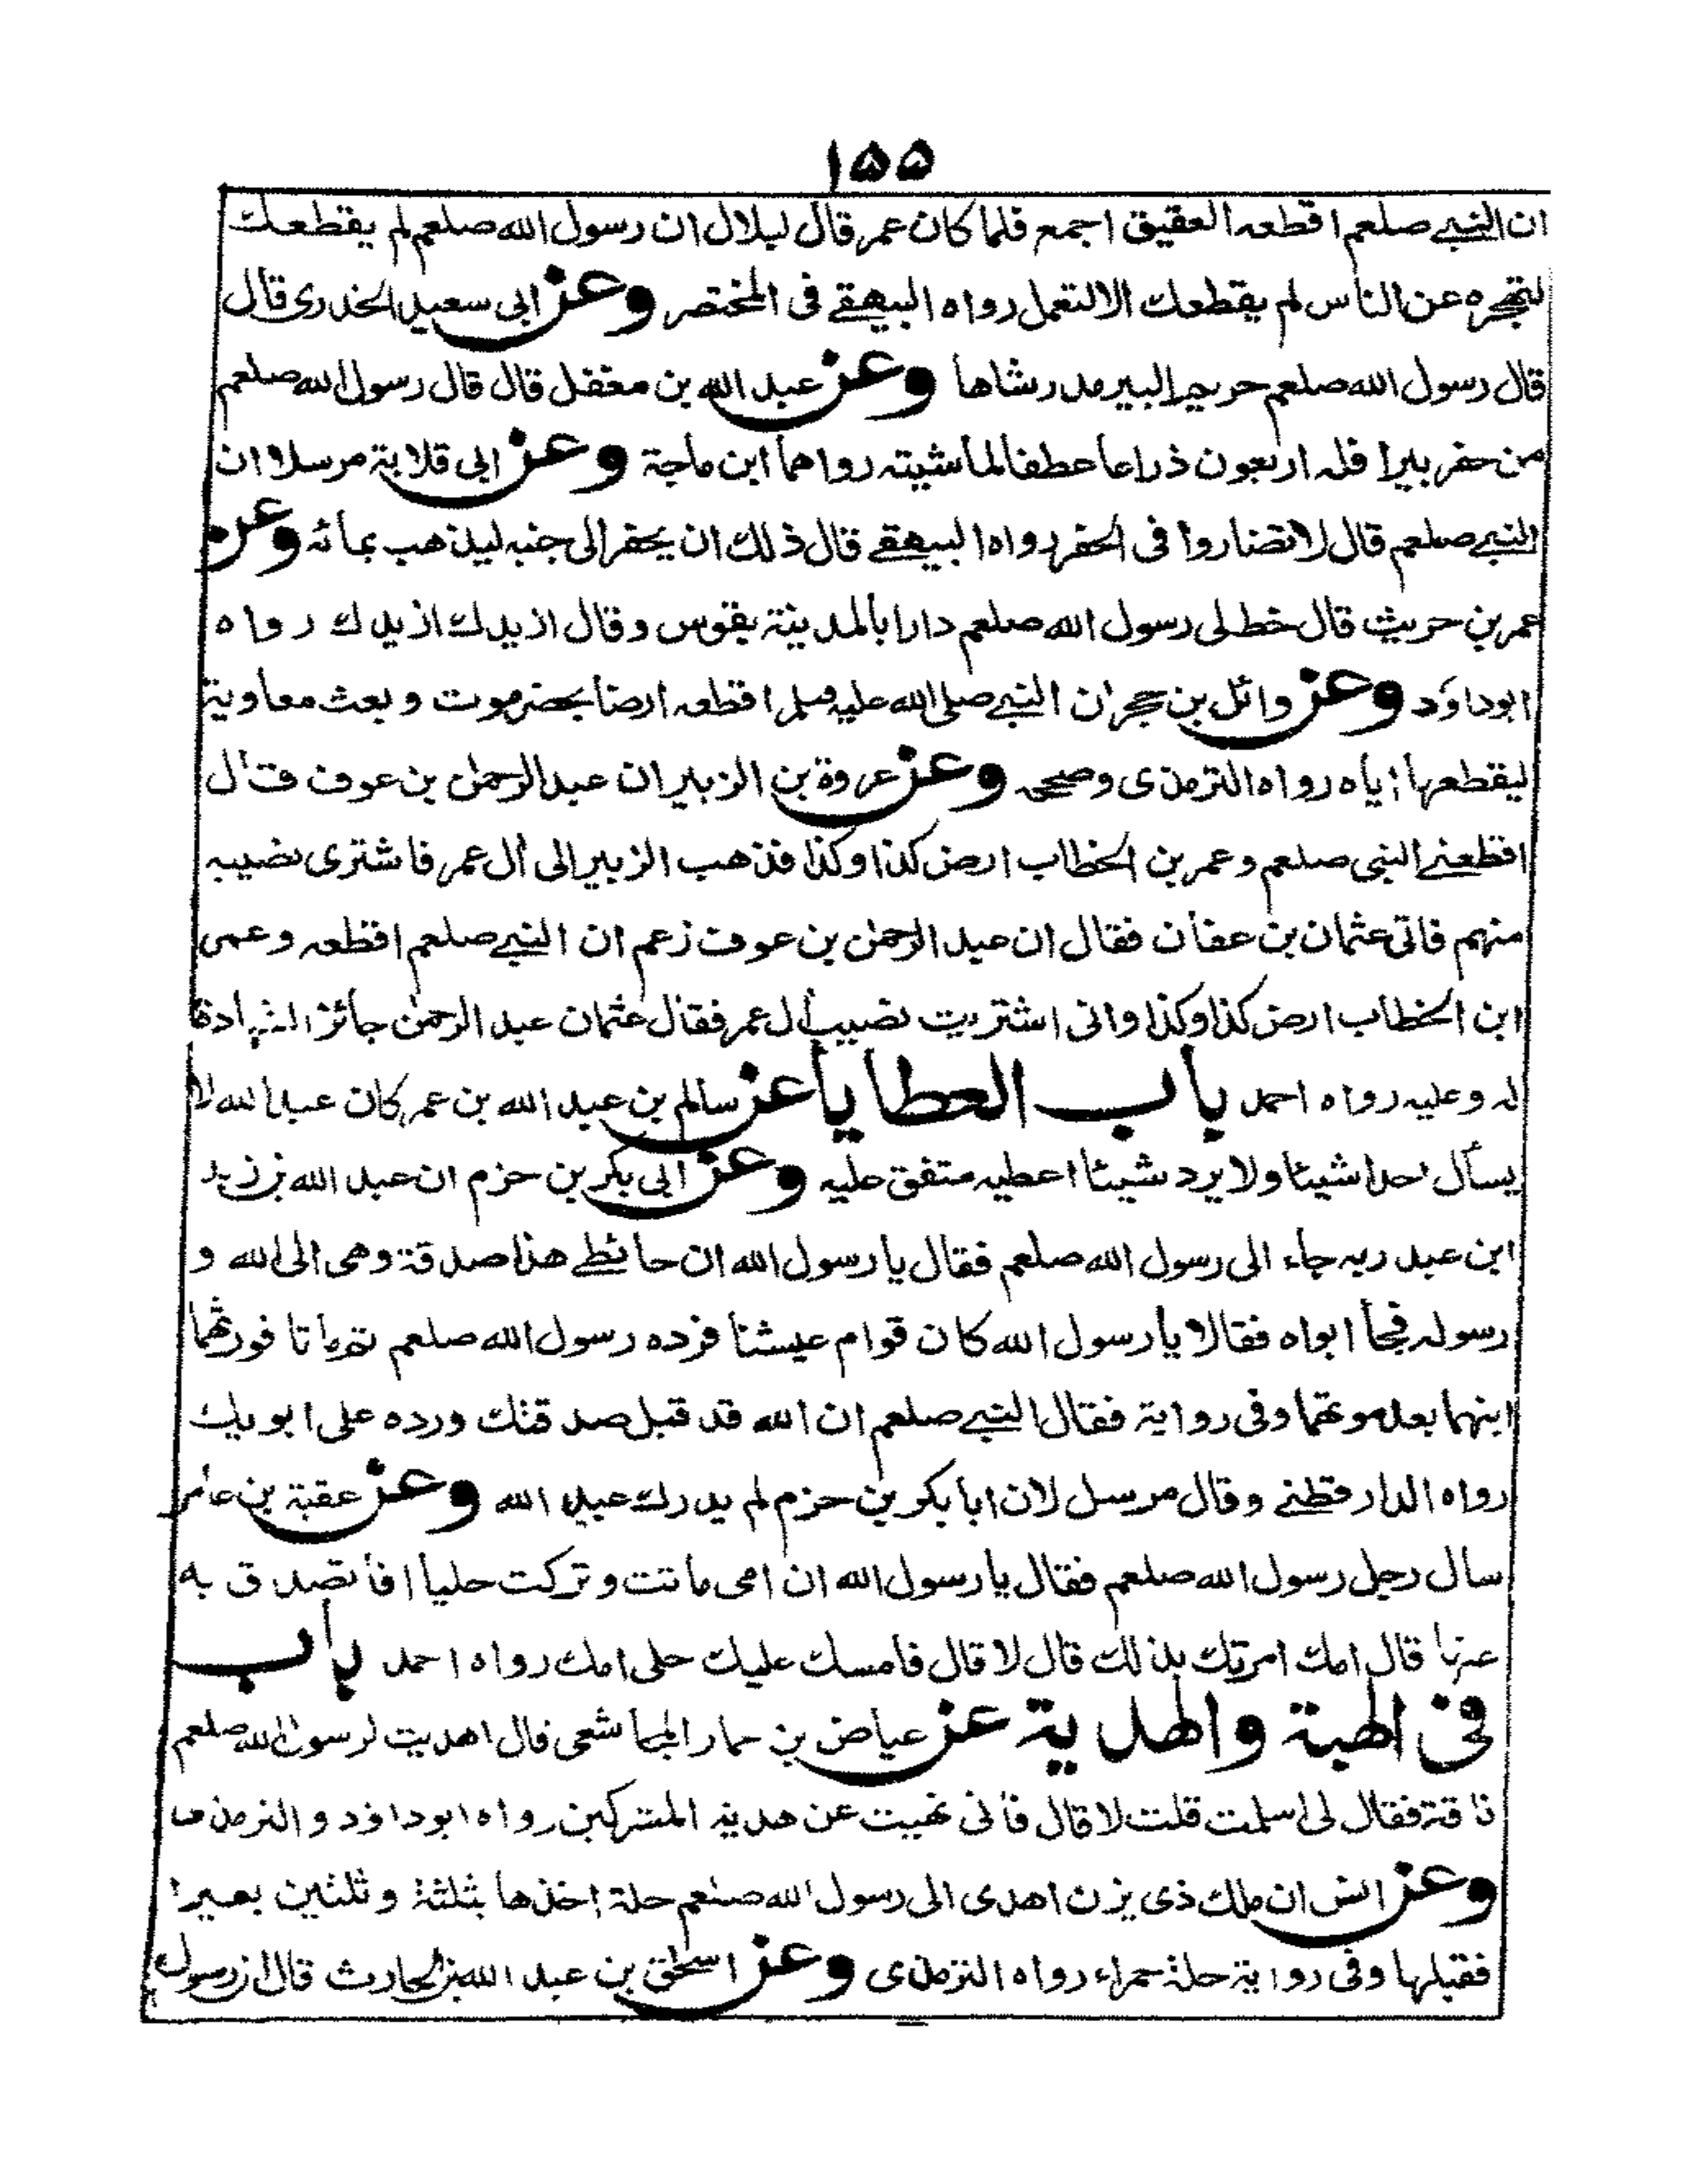 ١۵۵
ان النبي صلعم اقطعه العقيق اجمع فلما كان عمر قال لبلال ان رسول الله صلعم لم يقطعك
لتحجره عن الناس لم يقطعك الا لتعمل رواه البيهقي فى المختصر وعن ابى سعيد الخدرى قال
قال رسول الله صلعم حريم البير مد رشاها وعن عبد الله بن مغفل قال قال رسول الله صلعم
من حفر بيرا فله اربعون ذراعا عطفا لماشيته رواهما ابن ماجة وعن ابى قلابة مرسلا ان
النبي صلعم قال لا تضاروا فى الحفر رواه البيهقي قال ذلك ان يحفر الى جنبه ليذهب بمائه وعن
عمر بن حريث قال خط لى رسول الله صلعم دارا بالمدينة بقوس وقال ازيدك ازيدك رواه
ابو داؤد وعن وائل بن حجر ان النبي صلى الله عليه وسلم اقطعه ارضا بحضرموت وبعث معاوية
ليقطعها اياه رواه الترمذى وصححه وعن عروة بن الزبير ان عبد الرحمن بن عوف قال
اقطعني النبى صلعم وعمر بن الخطاب ارض كذا وكذا فذهب الزبير الى أل عمر فاشترى نصيبه
منهم فاتى عثمان بن عفان فقال ان عبد الرحمن بن عوف زعم ان النبي صلعم اقطعه وعمر
ابن الخطاب ارض كذا وكذا وانى اشتريت نصيب أل عمر فقال عثمان عبد الرحمن جائز الشهادة
له وعليه رواه احمد باب العطايا عن سالم بن عبد الله بن عمر كان عبد الله لا
يسأل احدا شيئا ولا يرد شيئا اعطيه متفق عليه وعن ابى بكر بن حزم ان عبد الله بن زيد
ابن عبد ربه جاء الى رسول الله صلعم فقال يا رسول الله ان حائطي هذا صدقة وهى الى الله و
رسوله فجأ ابواه فقالا يا رسول الله كان قوام عيشنا فرده رسول الله صلعم ثم ماتا فورثهما
ابنهما بعد موتهما وفى رواية فقال النبي صلعم ان الله قد قبل صدقتك ورده على ابويك
رواه الدارقطني وقال مرسل لان ابا بكر بن حزم لم يدرك عبد الله وعن عقبة بن عامر
سال رجل رسول الله صلعم فقال يا رسول الله ان امى ماتت وتركت حليا افاتصدق به
عنها قال امك امرتك بذلك قال لا قال فامسك عليك حلى امك رواه احمد باب
فى الهبة والهدية عن عياض بن حمار المجاشعى قال اهديت لرسول الله صلعم
ناقة فقال لى اسلمت قلت لا قال فانى نهيت عن هدية المشركين رواه ابو داؤد والترمذى
وعن انس ان ملك ذى يزن اهدى الى رسول الله صلعم حلة اخذها بثلثة وثلثين بعيرا
فقبلها وفى رواية حلة حمراء رواه الترمذى وعن اسحق بن عبد الله بن الحارث قال ان رسول